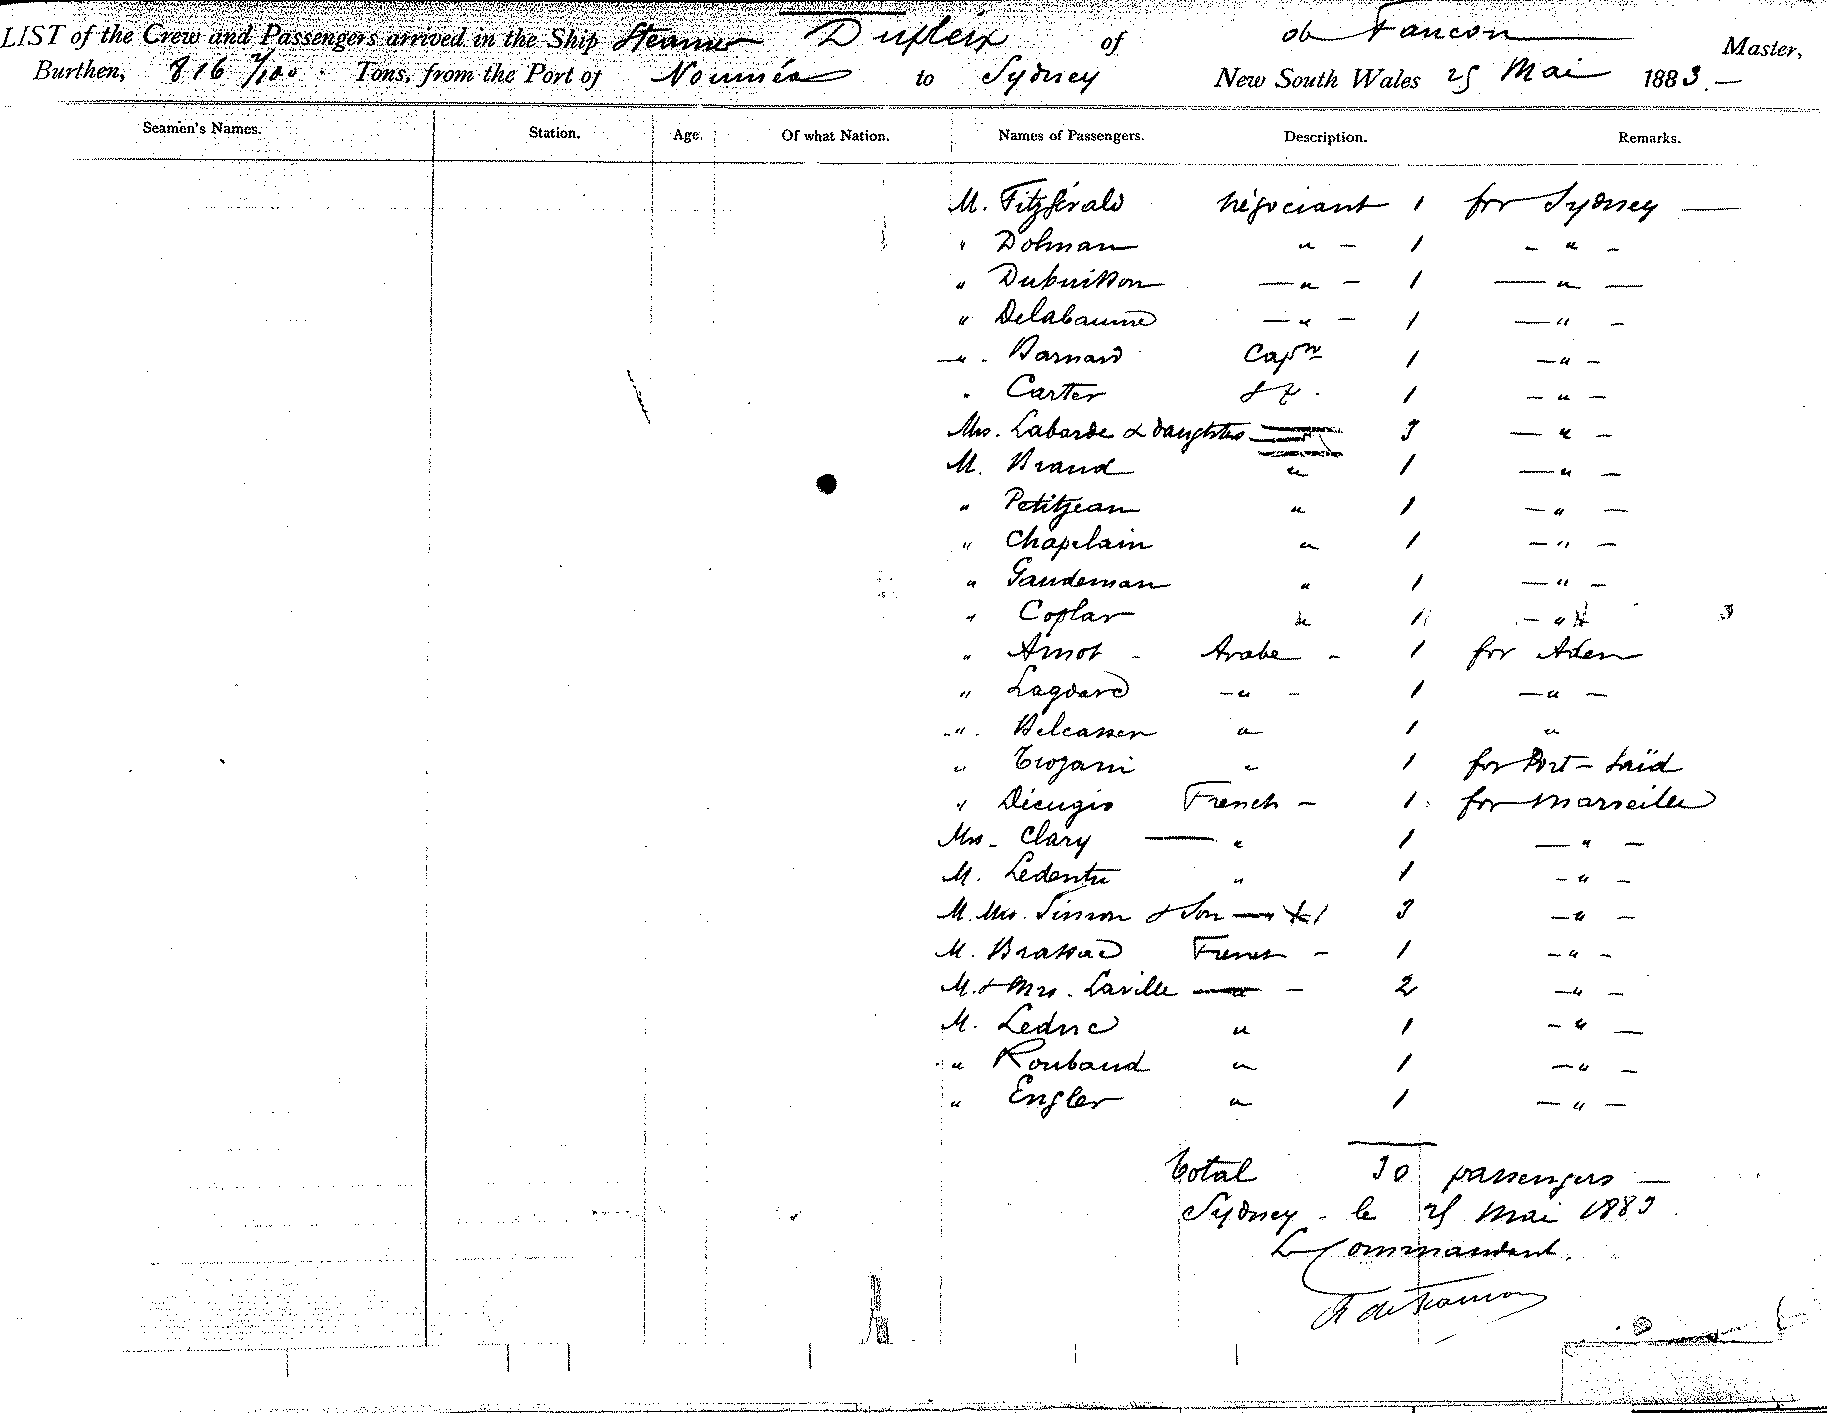 LIST of the Crew and Passengers arrived in the Ship Steamer Dupleix of de Faucon Master,
Burthen, 816 7/100 Tons, from the Port of Nouméa to Sydney New South Wales 25 Mai 1883.—
Seamen's Names. Station. Age. Of what Nation. Names of Passengers. Description. Remarks.
M. Fitzgérald négociant 1 for Sydney —
" Dolman " – 1 – " –
" Dubuisson — " – 1 — " —
" Delabaume — " – 1 — " –
— " . Barnard Cap^n 1 — " –
" Carter 1 – " –
Mrs. Laborde & daughters 3 — " –
M. Braud " 1 — " –
" Petitjean " 1 – " –
" Chapelain " 1 – " –
" Gaudeman " 1 — " –
" Coplar " 1 – " 3
" Amot – Arabe – 1 for Aden
" Lagdard – " – 1 – " –
" Belcassen " 1 "
" Trojani " 1 for Port-Saïd
" Décugis French – 1 for Marseille
Mrs. Clary — " 1 — " –
M. Ledentu " 1 – " –
M. Mrs. Simon & Son — " 3 – " –
M. Brassac French – 1 – " –
M. & Mrs. Laville — " – 2 – " –
M. Leduc " 1 – " —
" Roubaud " 1 – " –
" Engler " 1 – " –
Total 30 passengers —
Sydney – le 25 Mai 1883
Le Commandant.
de Faucon